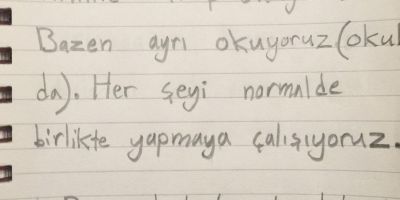 Bazen ayrı okuyoruz (okul
da). Her şeyi normalde
birlikte yapmaya çalışıyoruz.